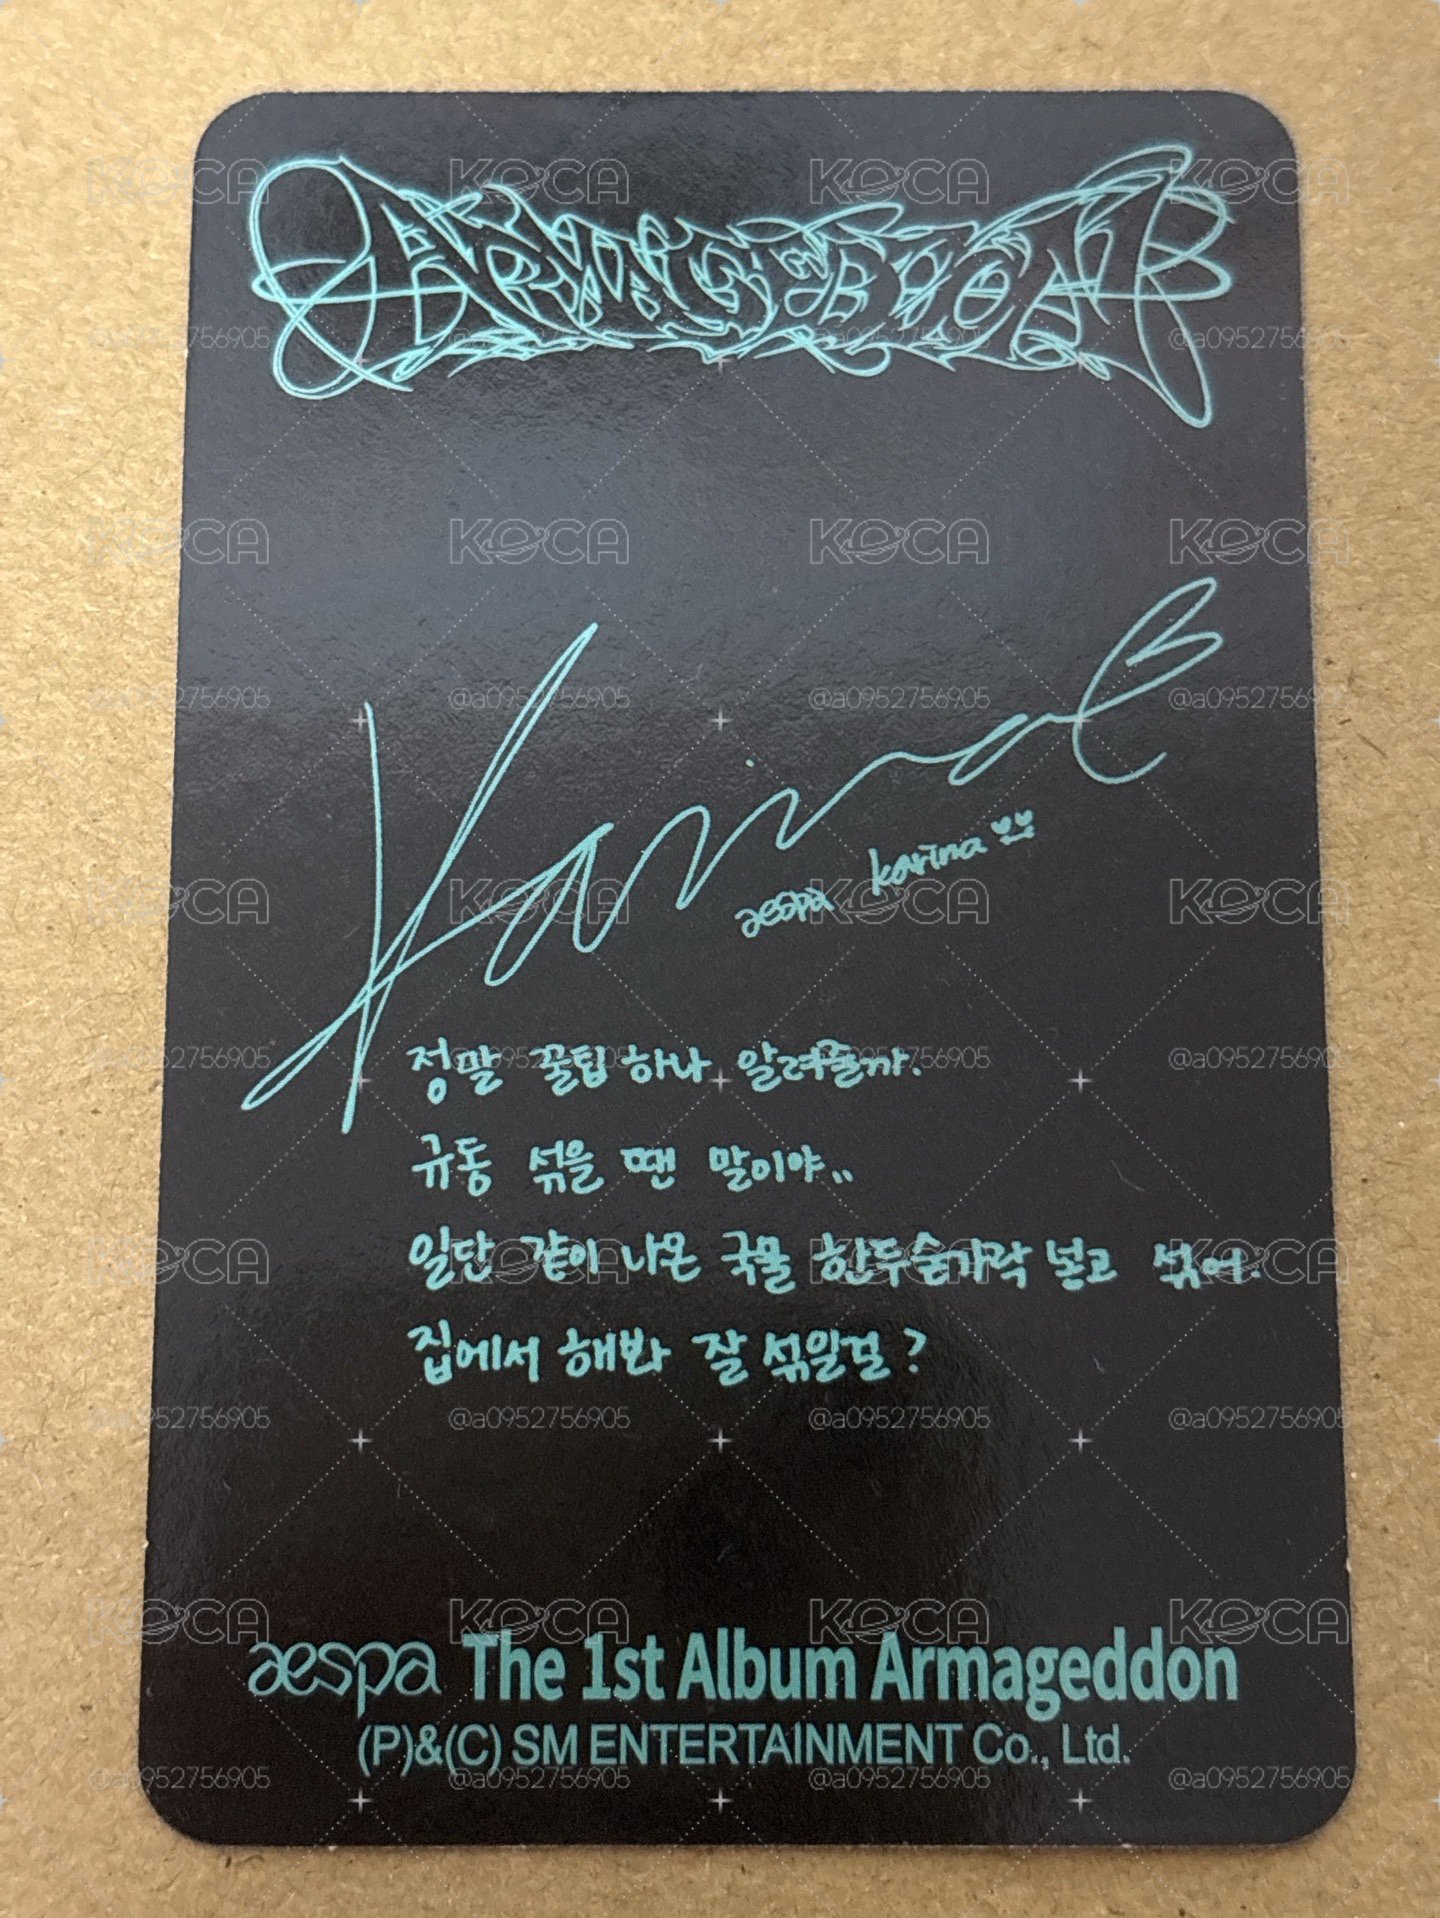 ARMAGEDDON
Karina
aespa karina
정말 꿀팁 하나 알려줄까.
규동 섞을 땐 말이야..
일단 같이 나온 국물 한두숟가락 넣고 섞어.
집에서 해봐 잘 섞일걸?
aespa The 1st Album Armageddon
(P)&(C) SM ENTERTAINMENT Co., Ltd.
KOCA
@a0952756905